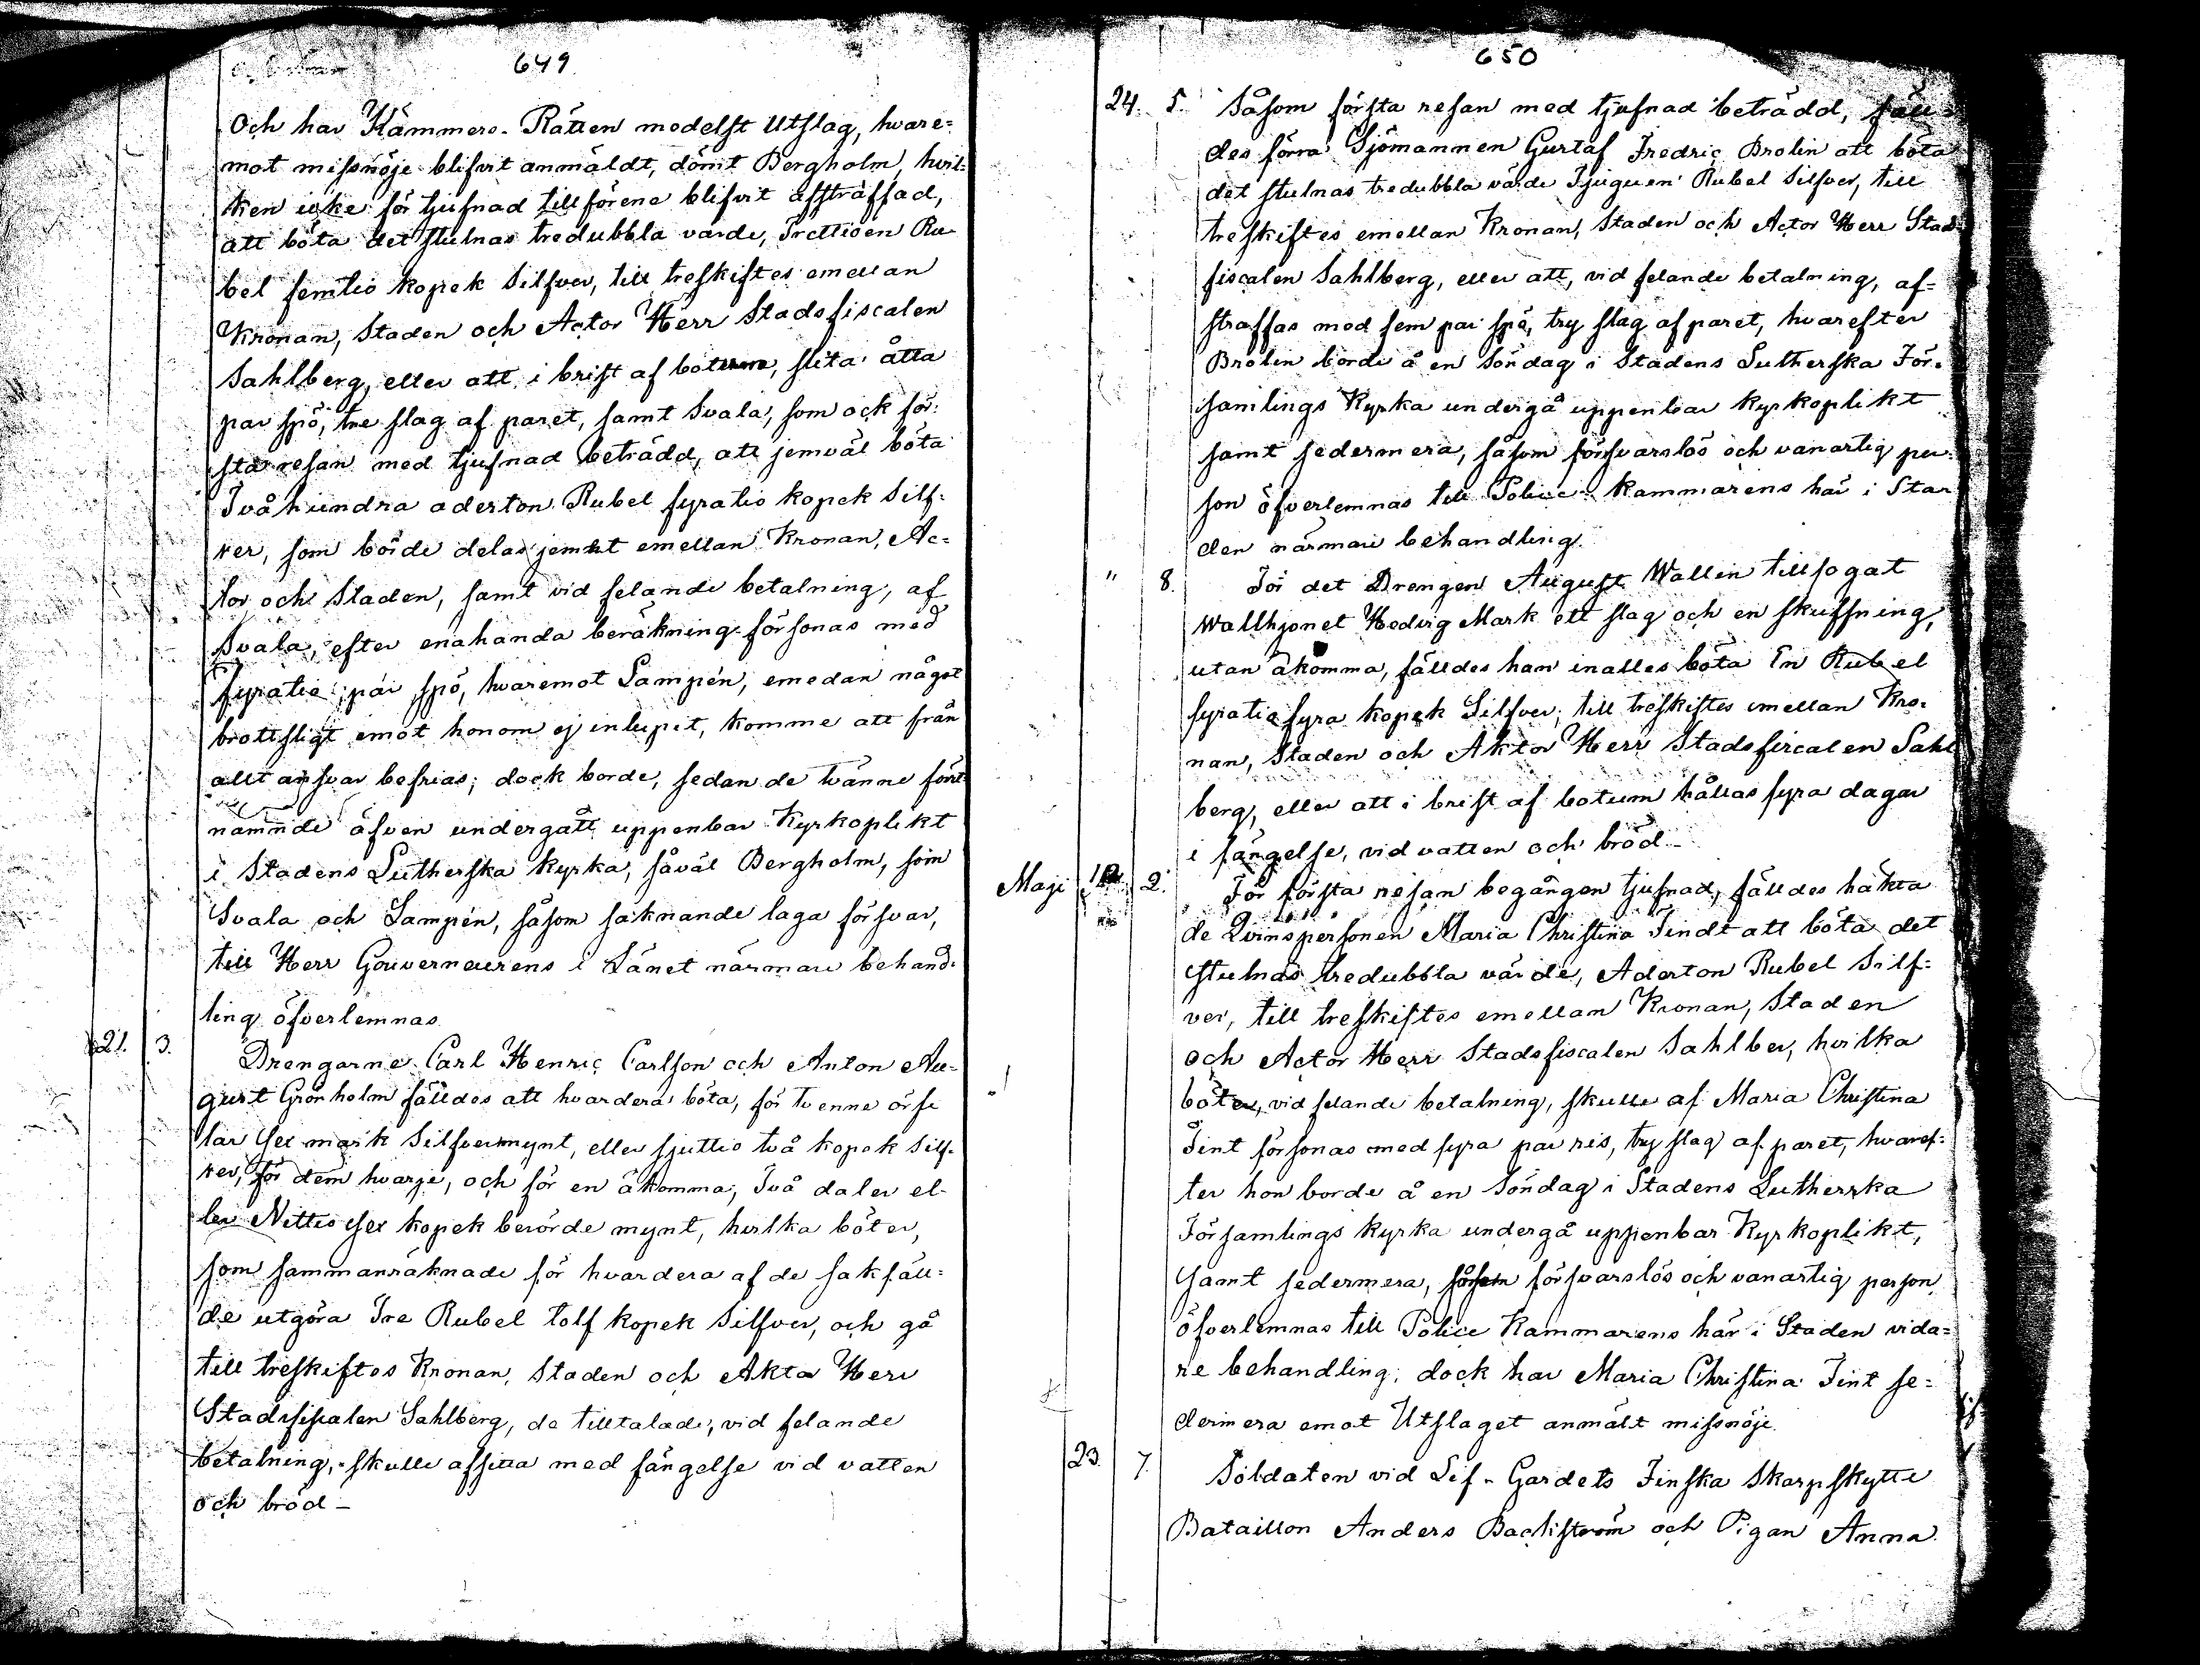 649
Och har Kämmers-Rätten medelst Utslag, hvare=
mot missnöje blifvit anmäldt, dömt Bergholm, hvil=
ken icke för tjufnad tillförene blifvit afstraffad,
att böta det stulnas tredubbla värde, Trettioen Ru-
bel femtio kopek Silfver, till treskiftes emellan
Kronan, Staden och Actor Herr Stadsfiscalen
Sahlberg, eller att, i brist af böterne, slita åtta
par spö, tre slag af paret, samt Svala, som ock för-
sta resan med tjufnad beträdd, att jemväl böta
Två hundra aderton Rubel fyratio kopek Silf-
ver, som börde delas jemnt emellan Kronan, Ac=
tor och Staden, samt vid felande betalning, af
Svala, efter enahanda beräkning försonas med
fyratio par spö, hvaremot Lampén, emedan något
brottsligt emot honom ej inlupit, komme att från
allt ansvar befrias; dock borde, sedan de tvänne först
nämnde äfven undergått uppenbar Kyrkoplikt
i Stadens Lutherska Kyrka, såväl Bergholm, som
Svala och Lampén, såsom saknande laga försvar,
till Herr Gouverneurens i Länet närmare behand-
ling öfverlemnas.
21. 3. Drengarne Carl Henric Carlson och Anton Au-
gust Grönholm fälldes att hvardera böta, för tvenne örfi
lar Sex mark Silfvermynt, eller sjuttio två kopek Silf-
ver, för dem hvarje, och för en åkomma, Två daler el-
ler Nittio sex kopek berörde mynt, hvilka böter,
som sammanräknade för hvardera af de sakfäll-
de utgöra Tre Rubel tolf kopek Silfver, och gå
till treskiftes Kronan, Staden och Aktor Herr
Stadsfiscalen Sahlberg, de tilltalade, vid felande
betalning, skulle afsitta med fängelse vid vatten
och bröd –
650
24. 5. Såsom första resan med tjufnad beträdd, fäll=
des förra Sjömannen Gustaf Fredric Brolin att böta
det stulnas tredubbla värde Tjuguen Rubel Silfver, till
treskiftes emellan Kronan, Staden och Actor Herr Stads
fiscalen Sahlberg, eller att, vid felande betalning, af=
straffas med fem par spö, try slag af paret, hvarefter
Brolin borde å en Söndag i Stadens Lutherska För-
samlings Kyrka undergå uppenbar kyrkoplikt
samt sedermera, såsom försvarslös och vanartig per-
son öfverlemnas till Police Kammarens här i Sta
den närmare behandling.
" 8. För det Drengen August Wallin tillfogat
Wallhjonet Hedvig Mark ett slag och en skuffning,
utan åkomma, fälldes han inalles böta En Rubel
fyratiofyra kopek Silfver, till treskiftes emellan Kro-
nan, Staden och Aktor Herr Stadsfiscalen Sahl
berg, eller att i brist af botum hållas fyra dagar
i fängelse, vid vatten och bröd –
Maji 2. För första resan begången tjufnad, fälldes häkta
de Qvinspersonen Maria Christina Tindt att böta det
stulnas tredubbla värde, Aderton Rubel Silf=
ver, till treskiftes emellan Kronan, Staden
och Actor Herr Stadsfiscalen Sahlber, hvilka
böter, vid felande betalning, skulle af Maria Christina
Tint försonas med fyra par ris, try slag af paret, hvaref-
ter hon borde å en Söndag i Stadens Lutherska
Församlings kyrka undergå uppenbar Kyrkoplikt,
samt sedermera, såsom försvarslös och vanartig person
öfverlemnas till Police Kammarens här i Staden vida=
re behandling; dock har Maria Christina Tint se=
dermera emot Utslaget anmält missnöje.
23. 7. Soldaten vid Lif-Gardets Finska Skarpskytte
Bataillon Anders Backström och Pigan Anna